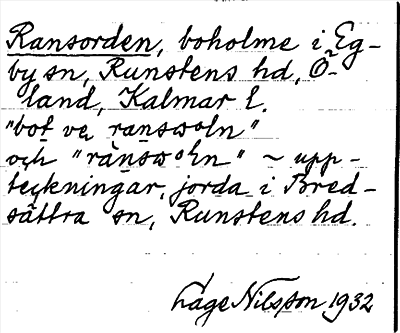 Ransorden, boholme i Eg-
by sn, Runstens hd, Ö-
land, Kalmar l.
"bot va ranswoln"
och "rànswoln" ~ upp-
teckningar, jorda i Bred-
sättra sn, Runstens hd.
Låge Nilsson 1932